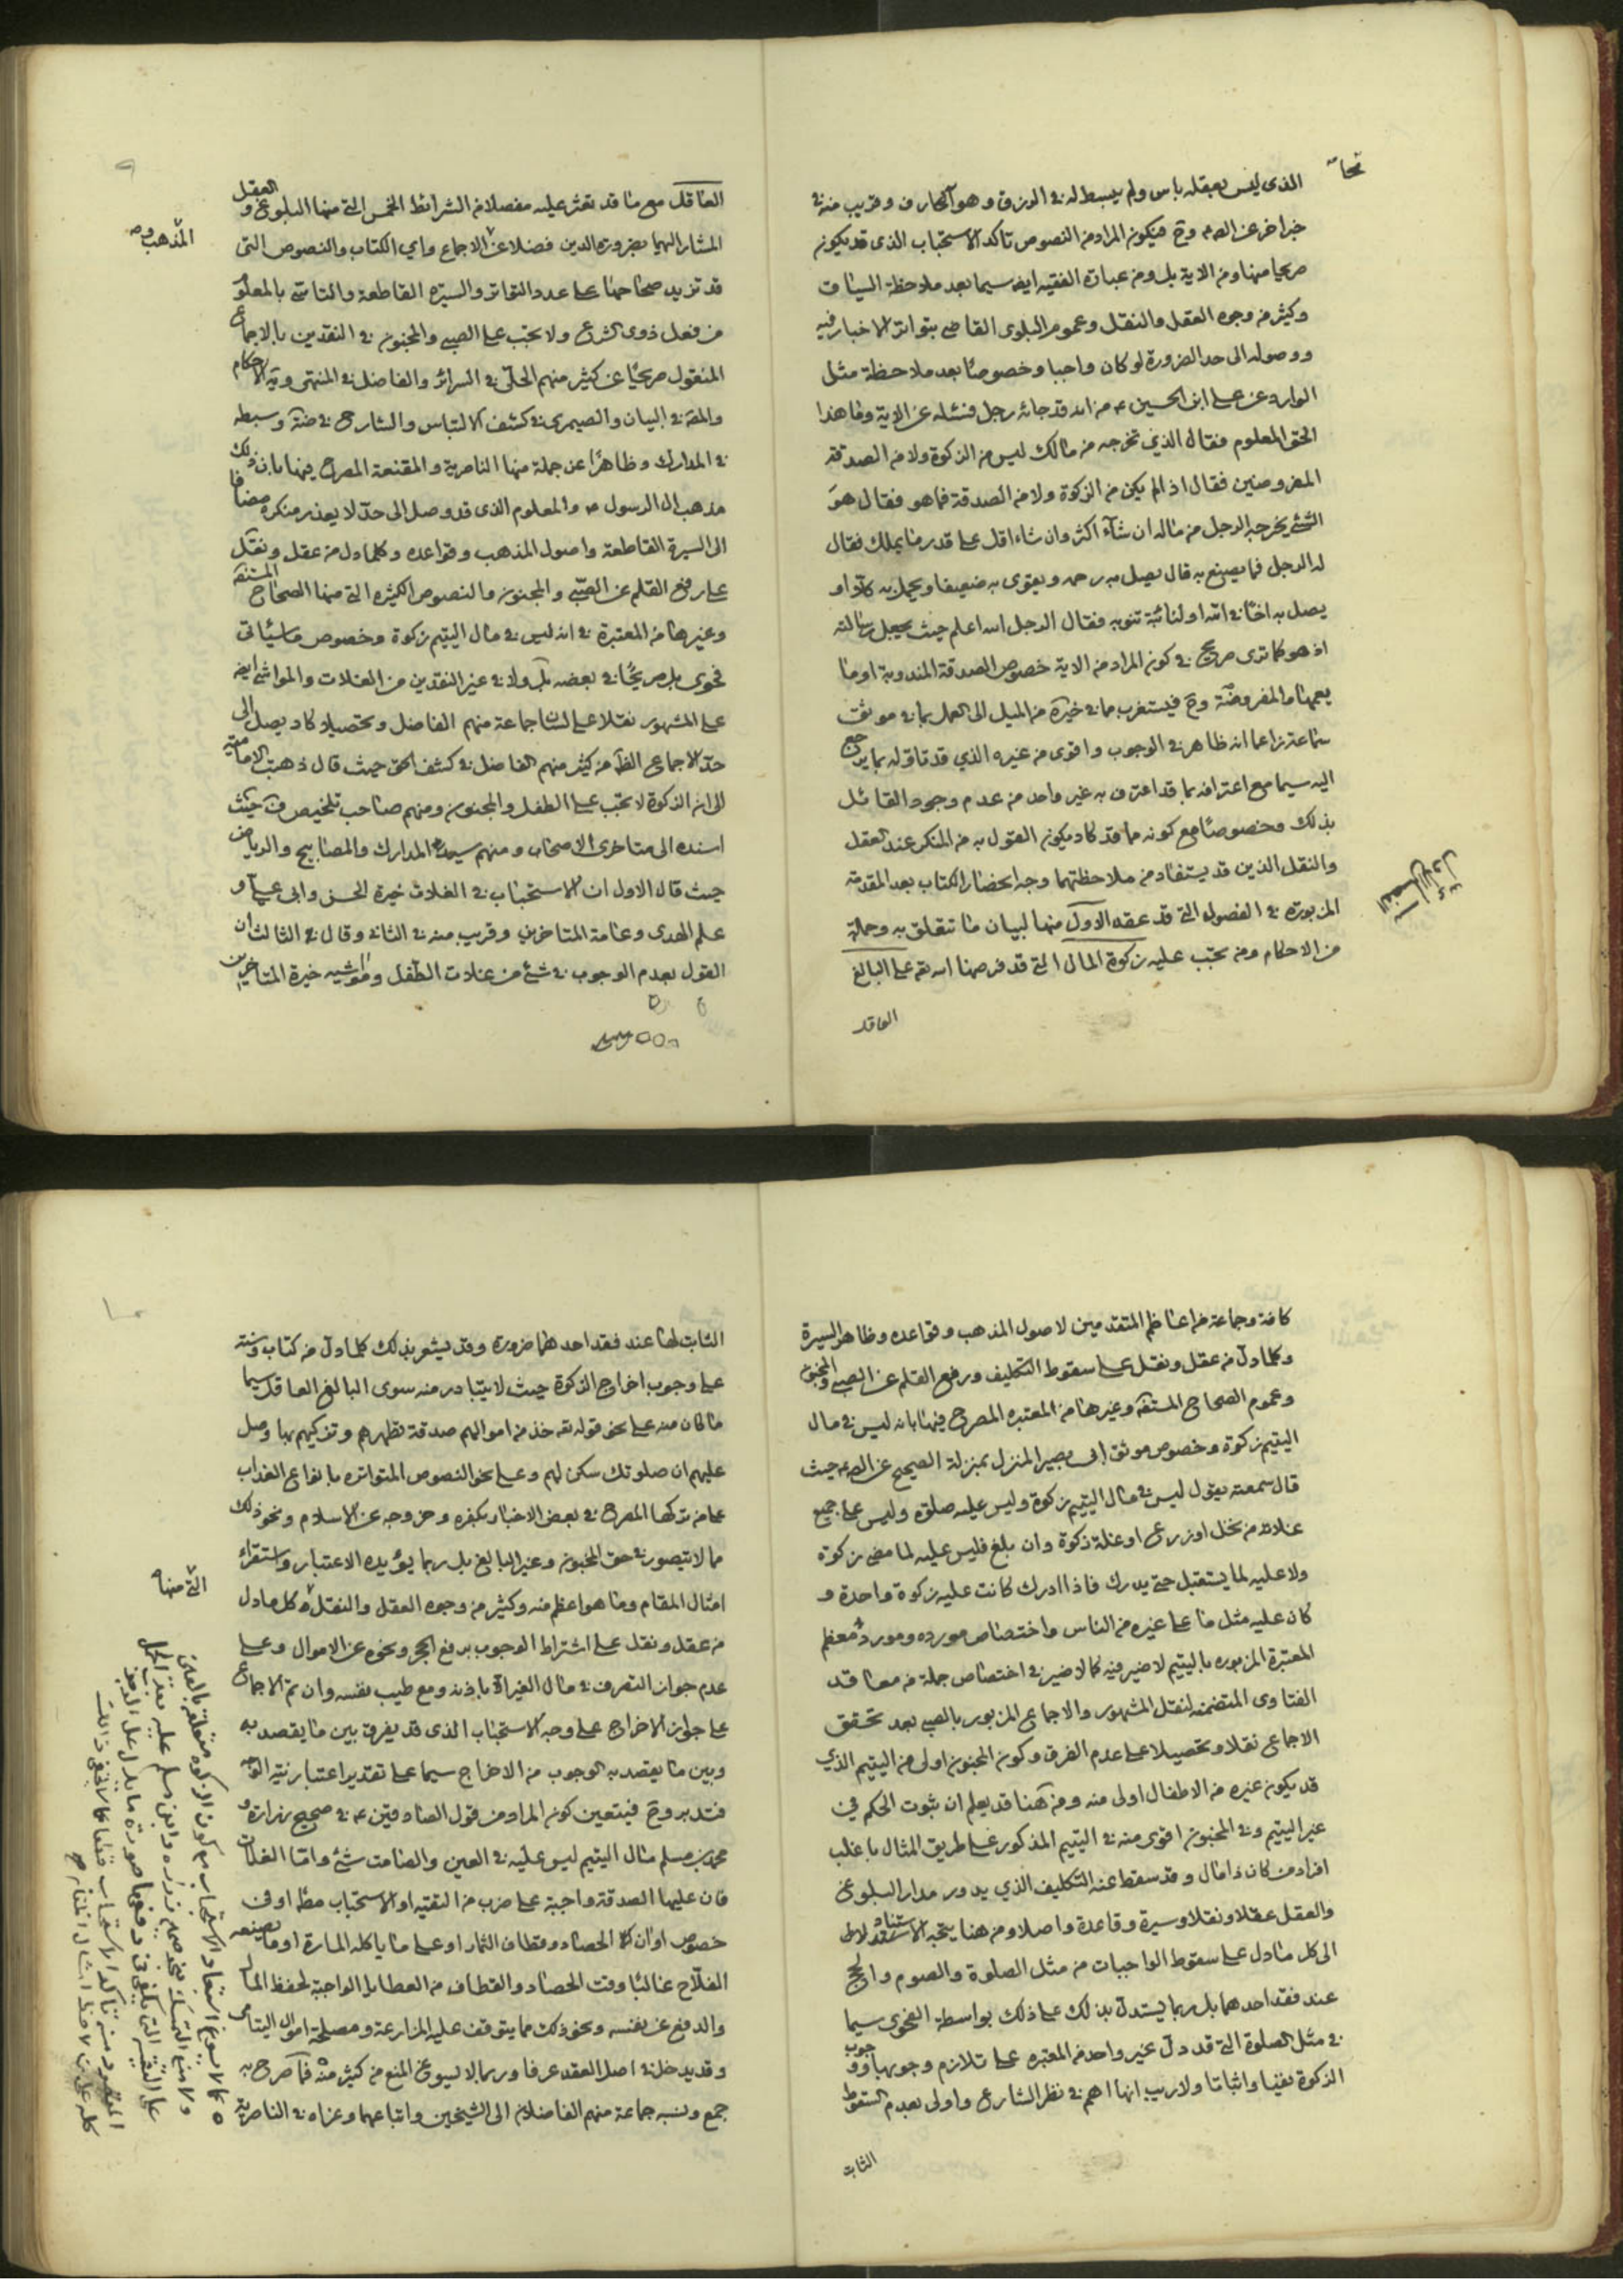 الذى ليس بعقله باس ولم يبسط له فى الرزق وهو المحارف وقريب منه فى
خبر اخر عن الصم وح فيكون المراد من النصوص تاكد الاستحباب الذى قد يكون
صريحا منها ومن الاية بل ومن عبارة الفقيه ايضا سيما بعد ملاحظة السياق
وكثير من وجوه العقل والنقل وعموم البلوى القاضى بتواتر الاخبار فيه
ووصوله الى حد الضرورة لو كان واجبا وخصوصا بعد ملاحظة مثل
الوارد عن على ابن الحسين ع من انه قد جائه رجل فسئله عن الاية وما هذا
الحق المعلوم فقال الذي تخرجه من مالك ليس من الزكوة ولا من الصدقة
المفروضتين فقال اذا لم يكن من الزكوة ولا من الصدقة فما هو فقال هو
الشئ يخرجه الرجل من ماله ان شاء اكثر وان شاء اقل على قدر ما يملك فقال
له الرجل فما يصنع به قال يصل به رحمه ويقوى به ضعيفا ويحمل به كلا او
يصل به اخا فى الله او لنائبة تنوبه فقال الرجل الله اعلم حيث يجعل رسالته
اذ هو كما ترى صريح فى كون المراد من الاية خصوص الصدقة المندوبة او ما
يعمها والمفروضة وح فيستغرب ما فى خيرة من الميل الى العمل بما فى موثق
سماعة زاعما انه ظاهر فى الوجوب واقوى من غيره الذي قد تاوله بما يرجع
اليه سيما مع اعترافه بما قد اعترف به غير واحد من عدم وجود القائل
بذلك وخصوصا مع كونه مما قد كاد يكون القول به من المنكر عند العقل
والنقل الذين قد يستفاد من ملاحظتهما وجه انحضار الكتاب بعد المقدمة
المزبورة فى الفصول التى قد عقد الاول منها لبيان ما تتعلق به وجملة
من الاحكام ومن تجب عليه زكوة المال التى قد فرضها الله تع على البالغ
العاقل
الفصل الاول
العاقل مع ما قد تعثر عليه مفصلا من الشرائط الخمس التى منها البلوغ والعقل
المشار اليهما بضرورة الدين فضلا عن الاجماع واي الكتاب والنصوص التى
المذهب و
قد تزيد صحاحها على عدد التواتر والسيرة القاطعة والتاسى بالمعلوم
من فعل ذوى الشرع ولا تجب على الصبى والمجنون فى النقدين بالاجماع
المنقول صريحا عن كثير منهم الحلى فى السرائر والفاضل فى المنتهى وية الاحكام
والمقة فى البيان والصيمرى فى كشف الالتباس والشارح فى ضة وسبطه
فى المدارك وظاهرا عن جملة منها الناصرية والمقنعة المصرح فيها بان ذلك
مذهب ال الرسول ص والمعلوم الذى قد وصل الى حد لا يعذر منكره مضافا
الى السيرة القاطعة واصول المذهب وقواعده وكلما دل من عقل ونقل
على رفع القلم عن الصبى والمجنون والنصوص الكثيرة التى منها الصحاح المستفة
وغيرها من المعتبرة فى انه ليس فى مال اليتيم زكوة وخصوص ما سياتى
فحوى بل صريحا فى بعضه بل ولا فى غير النقدين من الغلات والمواشى ايضا
على المشهور نقلا على لسان جماعة منهم الفاضل وتحصيلا كاد يصل الى
حد الاجماع الظ من كثير منهم الفاضل فى كشف الحق حيث قال ذهبت الامامية
الى ان الزكوة لا تجب على الطفل والمجنون ومنهم صاحب تلخيص ف حيث
اسنده الى متاخرى الاصحاب ومنهم سيدا المدارك والمصابيح والرياض
حيث قال الاول ان الاستحباب فى الغلات خيرة الحسن وابى على و
علم الهدى وعامة المتاخرين وقريب منه فى الثانى وقال فى الثالث ان
القول بعدم الوجوب فى شئ من غلات الطفل ومواشيه خيرة المتاخرين
كافة وجماعة من اعاظم المتقدمين لاصول المذهب وقواعده وظاهر السيرة
وكلما دل من عقل ونقل على سقوط التكليف ورفع القلم عن الصبى والمجنون
وعموم الصحاح المستفة وغيرها من المعتبرة المصرح فيها بانه ليس فى مال
اليتيم زكوة وخصوص موثق ابى بصير المنزل بمنزلة الصحيح عن الصم حيث
قال سمعته يقول ليس فى مال اليتيم زكوة وليس عليه صلوة وليس على جميع
غلاته من نخل او زرع او غلة زكوة وان بلغ فليس عليه لما مضى زكوة
ولا عليه لما يستقبل حتى يدرك فاذا ادرك كانت عليه زكوة واحدة و
كان عليه مثل ما على غيره من الناس واختصاص مورده ومورد معظم
المعتبرة المزبورة باليتيم لا ضير فيه كما لا ضير فى اختصاص جملة من معاقد
الفتاوى المتضمنة لنقل المشهور والاجماع المزبور بالصبى بعد تحقق
الاجماع نقلا وتحصيلا على عدم الفرق وكون المجنون اولى من اليتيم الذي
قد يكون غيره من الاطفال اولى منه ومن هنا قد يعلم ان ثبوت الحكم فى
غير اليتيم وفى المجنون اقوى منه فى اليتيم المذكور على طريق المثال باغلب
افراد من كان ذا مال وقد سقط عنه التكليف الذي يدور مدار البلوغ
والعقل عقلا ونقلا وسيرة وقاعدة واصلا ومن هنا يتجه الاستناد
الى كل ما دل على سقوط الواجبات من مثل الصلوة والصوم والحج
عند فقد احدهما بل ربما يستدل بذلك على ذلك بواسطة الفحوى سيما
فى مثل الصلوة التى قد دل غير واحد من المعتبرة على تلازم وجوبها ووجوب
الزكوة نفيا واثباتا ولا ريب انها اهم فى نظر الشارع واولى بعدم السقوط
الثابت
الثابت لها عند فقد احدهما ضرورة وقد يشعر بذلك كلما دل من كتاب وسنة
على وجوب اخراج الزكوة حيث لا يتبادر منه سوى البالغ العاقل سيما
ما كان منه على نحو قوله تع خذ من اموالهم صدقة تطهرهم وتزكيهم بها وصل
عليهم ان صلوتك سكن لهم وعلى نحو النصوص المتواترة بانواع العذاب
على من تركها المصرح فى بعض الاخبار بكفره وخروجه عن الاسلام ونحو ذلك
مما لا يتصور فى حق المجنون وغير البالغ بل ربما يؤيده الاعتبار واستقراء
امثال المقام وما هو اعظم منه وكثير من وجوه العقل والنقل كل ما دل
التى منها
من عقل ونقل على اشتراط الوجوب برفع الحجر ونحوه عن الاموال وعلى
عدم جواز التصرف فى مال الغير الا باذنه ومع طيب نفسه وان تم الاجماع
على جواز الاخراج على وجه الاستحباب الذى قد يفرق بين ما يقصد به
وبين ما يقصد به الوجوب من الاخراج سيما على تقدير اعتبار نية الوجه
فتدبر وح فيتعين كون المراد من قول الصادقين ع فى صحيح زرارة و
محمد بن مسلم مال اليتيم ليس عليه فى العين والصامت شئ واما الغلات
فان عليها الصدقة واجبة على ضرب من التقية او الاستحباب مطا او فى
خصوص اوان الحصاد وقطاف الثمار او على ما ياكله المارة او ما يصنعه
الفلاح غالبا وقت الحصاد والقطاف من العطايا الواجبة لحفظ المال
والدفع عن نفسه ونحو ذلك مما يتوقف عليه المزارعة ومصلحة اموال اليتامى
وقد يدخل فى اصل العقد عرفا وربما لا يسوغ المنع من كثير منه فما صرح به
جمع ونسبه جماعة منهم الفاضلان الى الشيخين واتباعهما وعزاه فى الناصرية